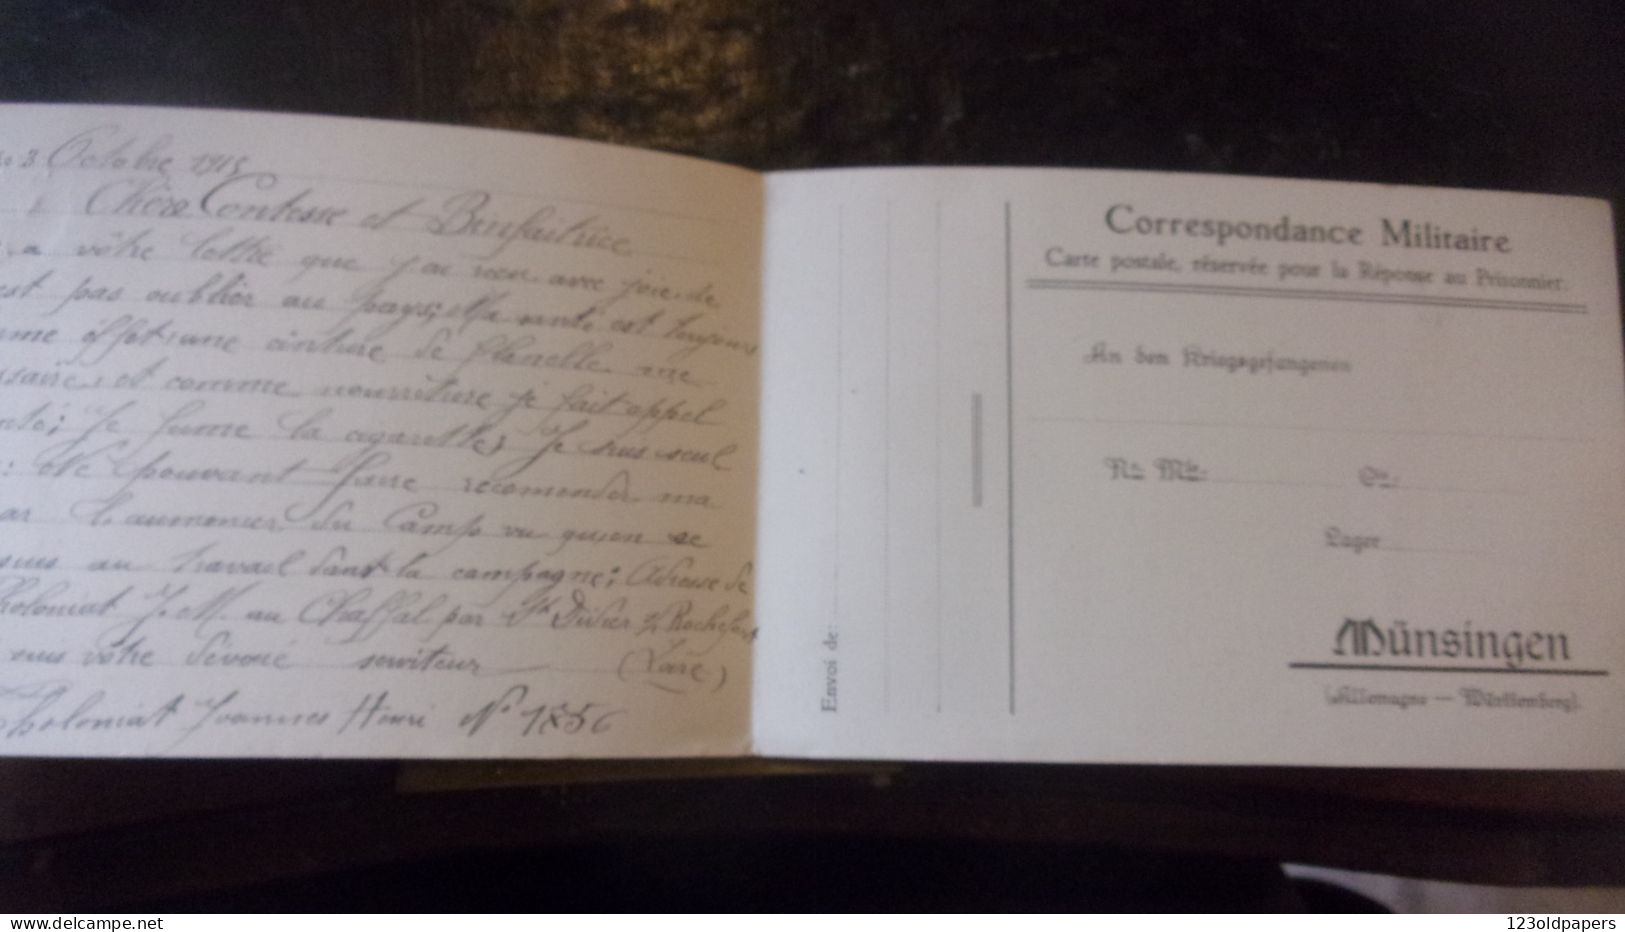 3 Octobre 1915
Chère Contesse et Bienfaitrice
a vôtre lettre que j'ai reçu avec joie de
est pas oublier au pays; Ma santé est toujours
offet: une cinture de flanelle me
ssaire, et comme nourriture je fait appel
nté; Je fume la cigarette, Je suis seul
: Ne pouvant faire recomender ma
ar L'aumonier du Camp vu qu'on se
au travail dans la campagne; Adresse de
Choloniat J. M. au Chaffal par St Didier s/ Rochefort
vôtre dévoué serviteur (Loire)
Choloniat Joannes Henri N° 1856
Correspondance Militaire
Carte postale, réservée pour la Réponse au Prisonnier.
An den Kriegsgefangenen
No Mle. Cie.
Lager
Münsingen
(Allemagne — Württemberg).
Envoi de:
www.delcampe.net
123oldpapers